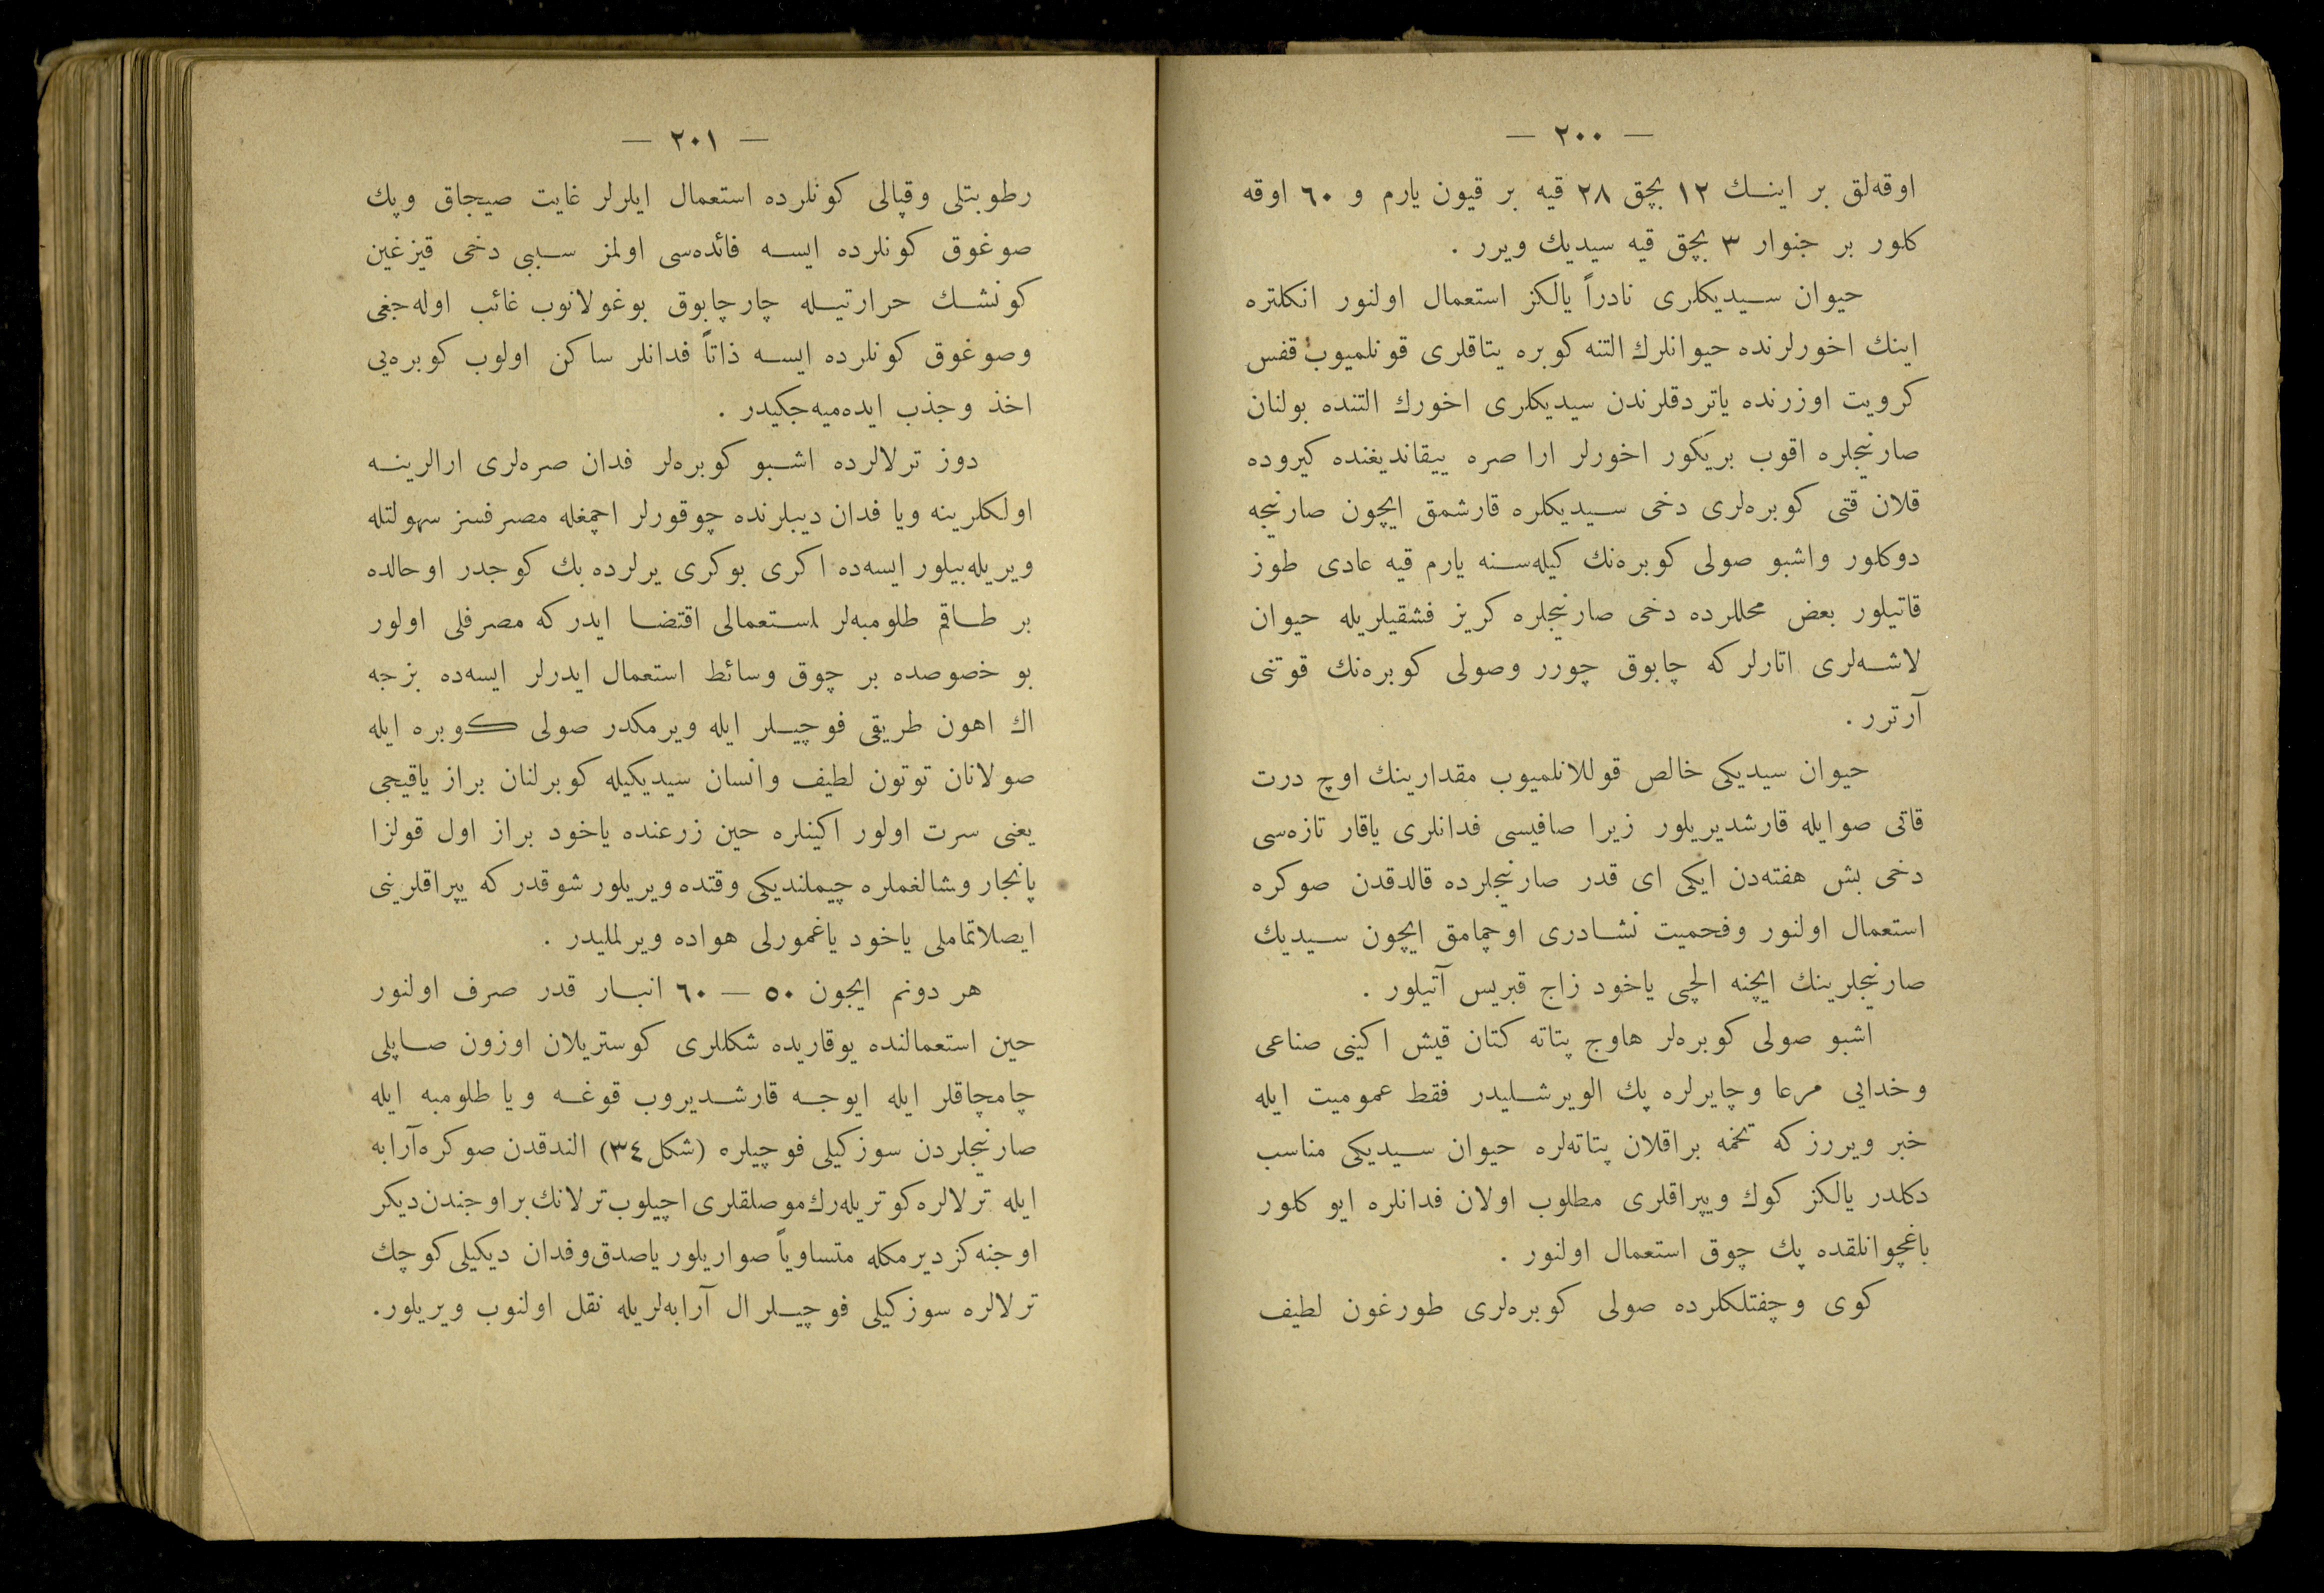 — ٢٠٠ —
اوقه‌لق بر اينك ١٢ بچق ٢٨ قيه بر قيون يارم و ٦٠ اوقه
كلور بر جنوار ٣ بچق قيه سيديك ويرر .
حيوان سيديكلرى نادراً يالكز استعمال اولنور انكلتره
اينك اخورلرنده حيوانلرك التنه كوبره يتاقلرى قونلميوب قفس
كرويت اوزرنده ياتردقلرندن سيديكلرى اخورك التنده بولنان
صارنيجلره اقوب بريكور اخورلر ارا صره ييقانديغنده كيروده
قلان قتى كوبره‌لرى دخى سيديكلره قارشمق ايچون صارنيجه
دوكلور واشبو صولى كوبره‌نك كيله‌سنه يارم قيه عادى طوز
قاتيلور بعض محللرده دخى صارنيجلره كريز فشقيلريله حيوان
لاشه‌لرى اتارلر كه چابوق چورر وصولى كوبره‌نك قوتنى
آرترر .
حيوان سيديكى خالص قوللانلميوب مقدارينك اوچ درت
قاتى صوايله قارشديريلور زيرا صافيسى فدانلرى ياقار تازه‌سى
دخى بش هفته‌دن ايكى اى قدر صارنيجلرده قالدقدن صوكره
استعمال اولنور وفحميت نشادرى اوچمامق ايچون سيديك
صارنيجلرينك ايچنه الچى ياخود زاج قبريس آتيلور .
اشبو صولى كوبره‌لر هاوج پتاته كتان قيش اكينى صناعى
وخدايى مرعا وچايرلره پك الويرشليدر فقط عموميت ايله
خبر ويررز كه تخمه براقلان پتاته‌لره حيوان سيديكى مناسب
دكلدر يالكز كوك وييراقلرى مطلوب اولان فدانلره ايو كلور
باغچوانلقده پك چوق استعمال اولنور .
كوى وچفتلكلرده صولى كوبره‌لرى طورغون لطيف
— ٢٠١ —
رطوبتلى وقپالى كونلرده استعمال ايلرلر غايت صيجاق وپك
صوغوق كونلرده ايسه فائده‌سى اولمز سببى دخى قيزغين
كونشك حرارتيله چارچابوق بوغولانوب غائب اوله‌جغى
وصوغوق كونلرده ايسه ذاتاً فدانلر ساكن اولوب كوبره‌يى
اخذ وجذب ايده‌ميه‌جكيدر .
دوز ترلالرده اشبو كوبره‌لر فدان صره‌لرى ارالرينه
اولكلرينه ويا فدان ديبلرنده چوقورلر احمغله مصرفسز سهولتله
ويريله‌بيلور ايسه‌ده اكرى بوكرى يرلرده بك كوجدر اوحالده
بر طاقم طلومبه‌لر استعمالى اقتضا ايدركه مصرفلى اولور
بو خصوصده بر چوق وسائط استعمال ايدرلر ايسه‌ده بزجه
اك اهون طريقى فوچيلر ايله ويرمكدر صولى كوبره ايله
صولانان توتون لطيف وانسان سيديكيله كوبرلنان براز ياقيجى
يعنى سرت اولور اكينلره حين زرعنده ياخود براز اول قولزا
پانجار وشالغملره چيملنديكى وقتده ويريلور شوقدر كه يپراقلرينى
ايصلاتماملى ياخود ياغمورلى هواده ويرلمليدر .
هر دونم ايجون ٥٠ — ٦٠ انبار قدر صرف اولنور
حين استعمالنده يوقاريده شكللرى كوستريلان اوزون صاپلى
چامچاقلر ايله ايوجه قارشديروب قوغه ويا طلومبه ايله
صارنيجلردن سوزكيلى فوچيلره (شكل ٣٤) الندقدن صوكره آرابه
ايله ترلالره كوتريله‌رك موصلقلرى اچيلوب ترلانك براوجندن ديكر
اوجنه كزديرمكله متساوياً صواريلور ياصدق وفدان ديكيلى كوچك
ترلالره سوزكيلى فوچيلر ال آرابه‌لريله نقل اولنوب ويريلور.